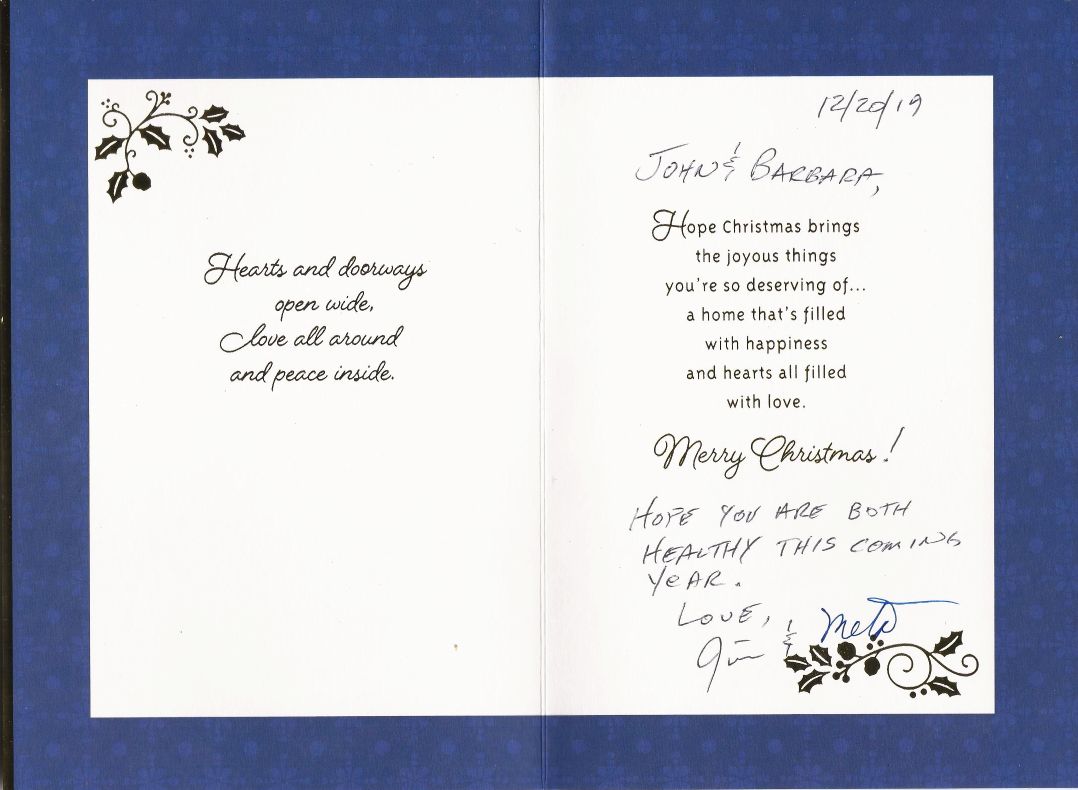 Hearts and doorways
open wide,
love all around
and peace inside.
12/20/19
JOHN & BARBARA,
Hope Christmas brings
the joyous things
you're so deserving of...
a home that's filled
with happiness
and hearts all filled
with love.
Merry Christmas!
HOPE YOU ARE BOTH
HEALTHY THIS COMING
YEAR.
LOVE,
Jim & Meta